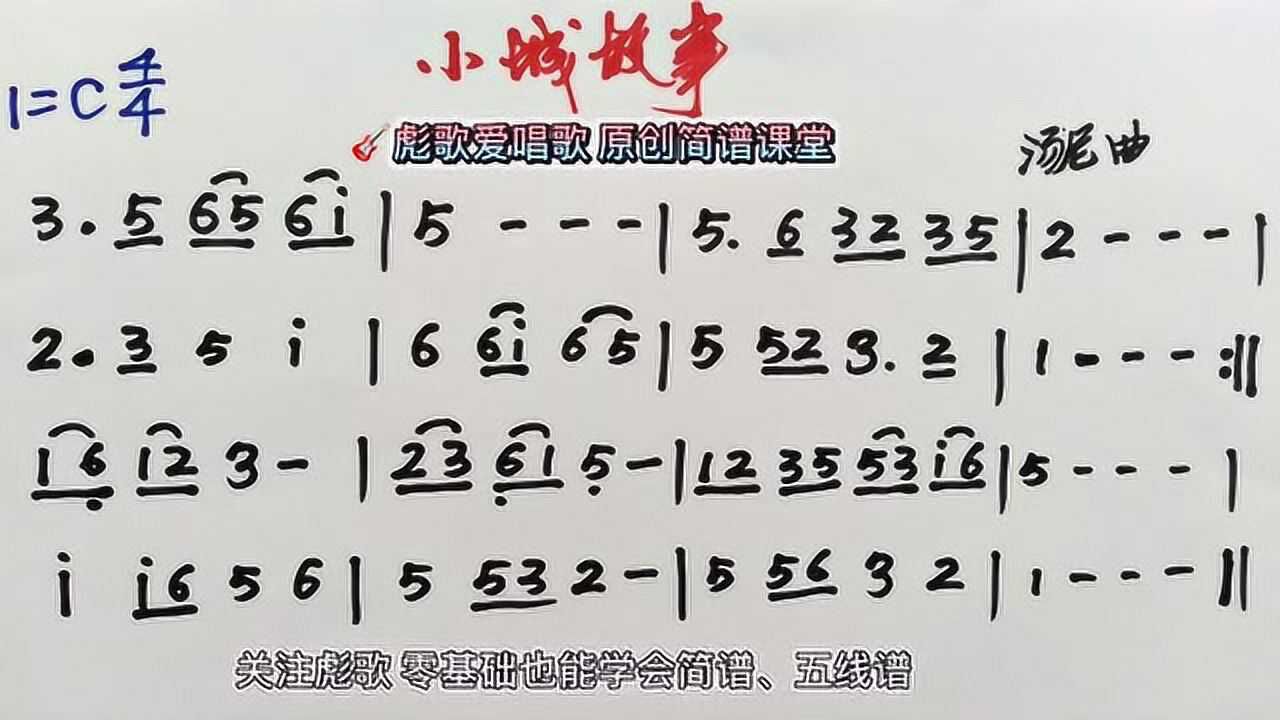 小城故事
1=C 4/4
彪歌爱唱歌 原创简谱课堂
汤尼曲
3. 5 65 6i | 5 - - - | 5. 6 32 35 | 2 - - - |
2. 3 5 i | 6 6i 65 | 5 52 3. 2 | 1 - - - :||
16 12 3 - | 23 61 5 - | 12 35 53 i6 | 5 - - - |
i i6 5 6 | 5 53 2 - | 5 56 3 2 | 1 - - - ||
关注彪歌 零基础也能学会简谱、五线谱